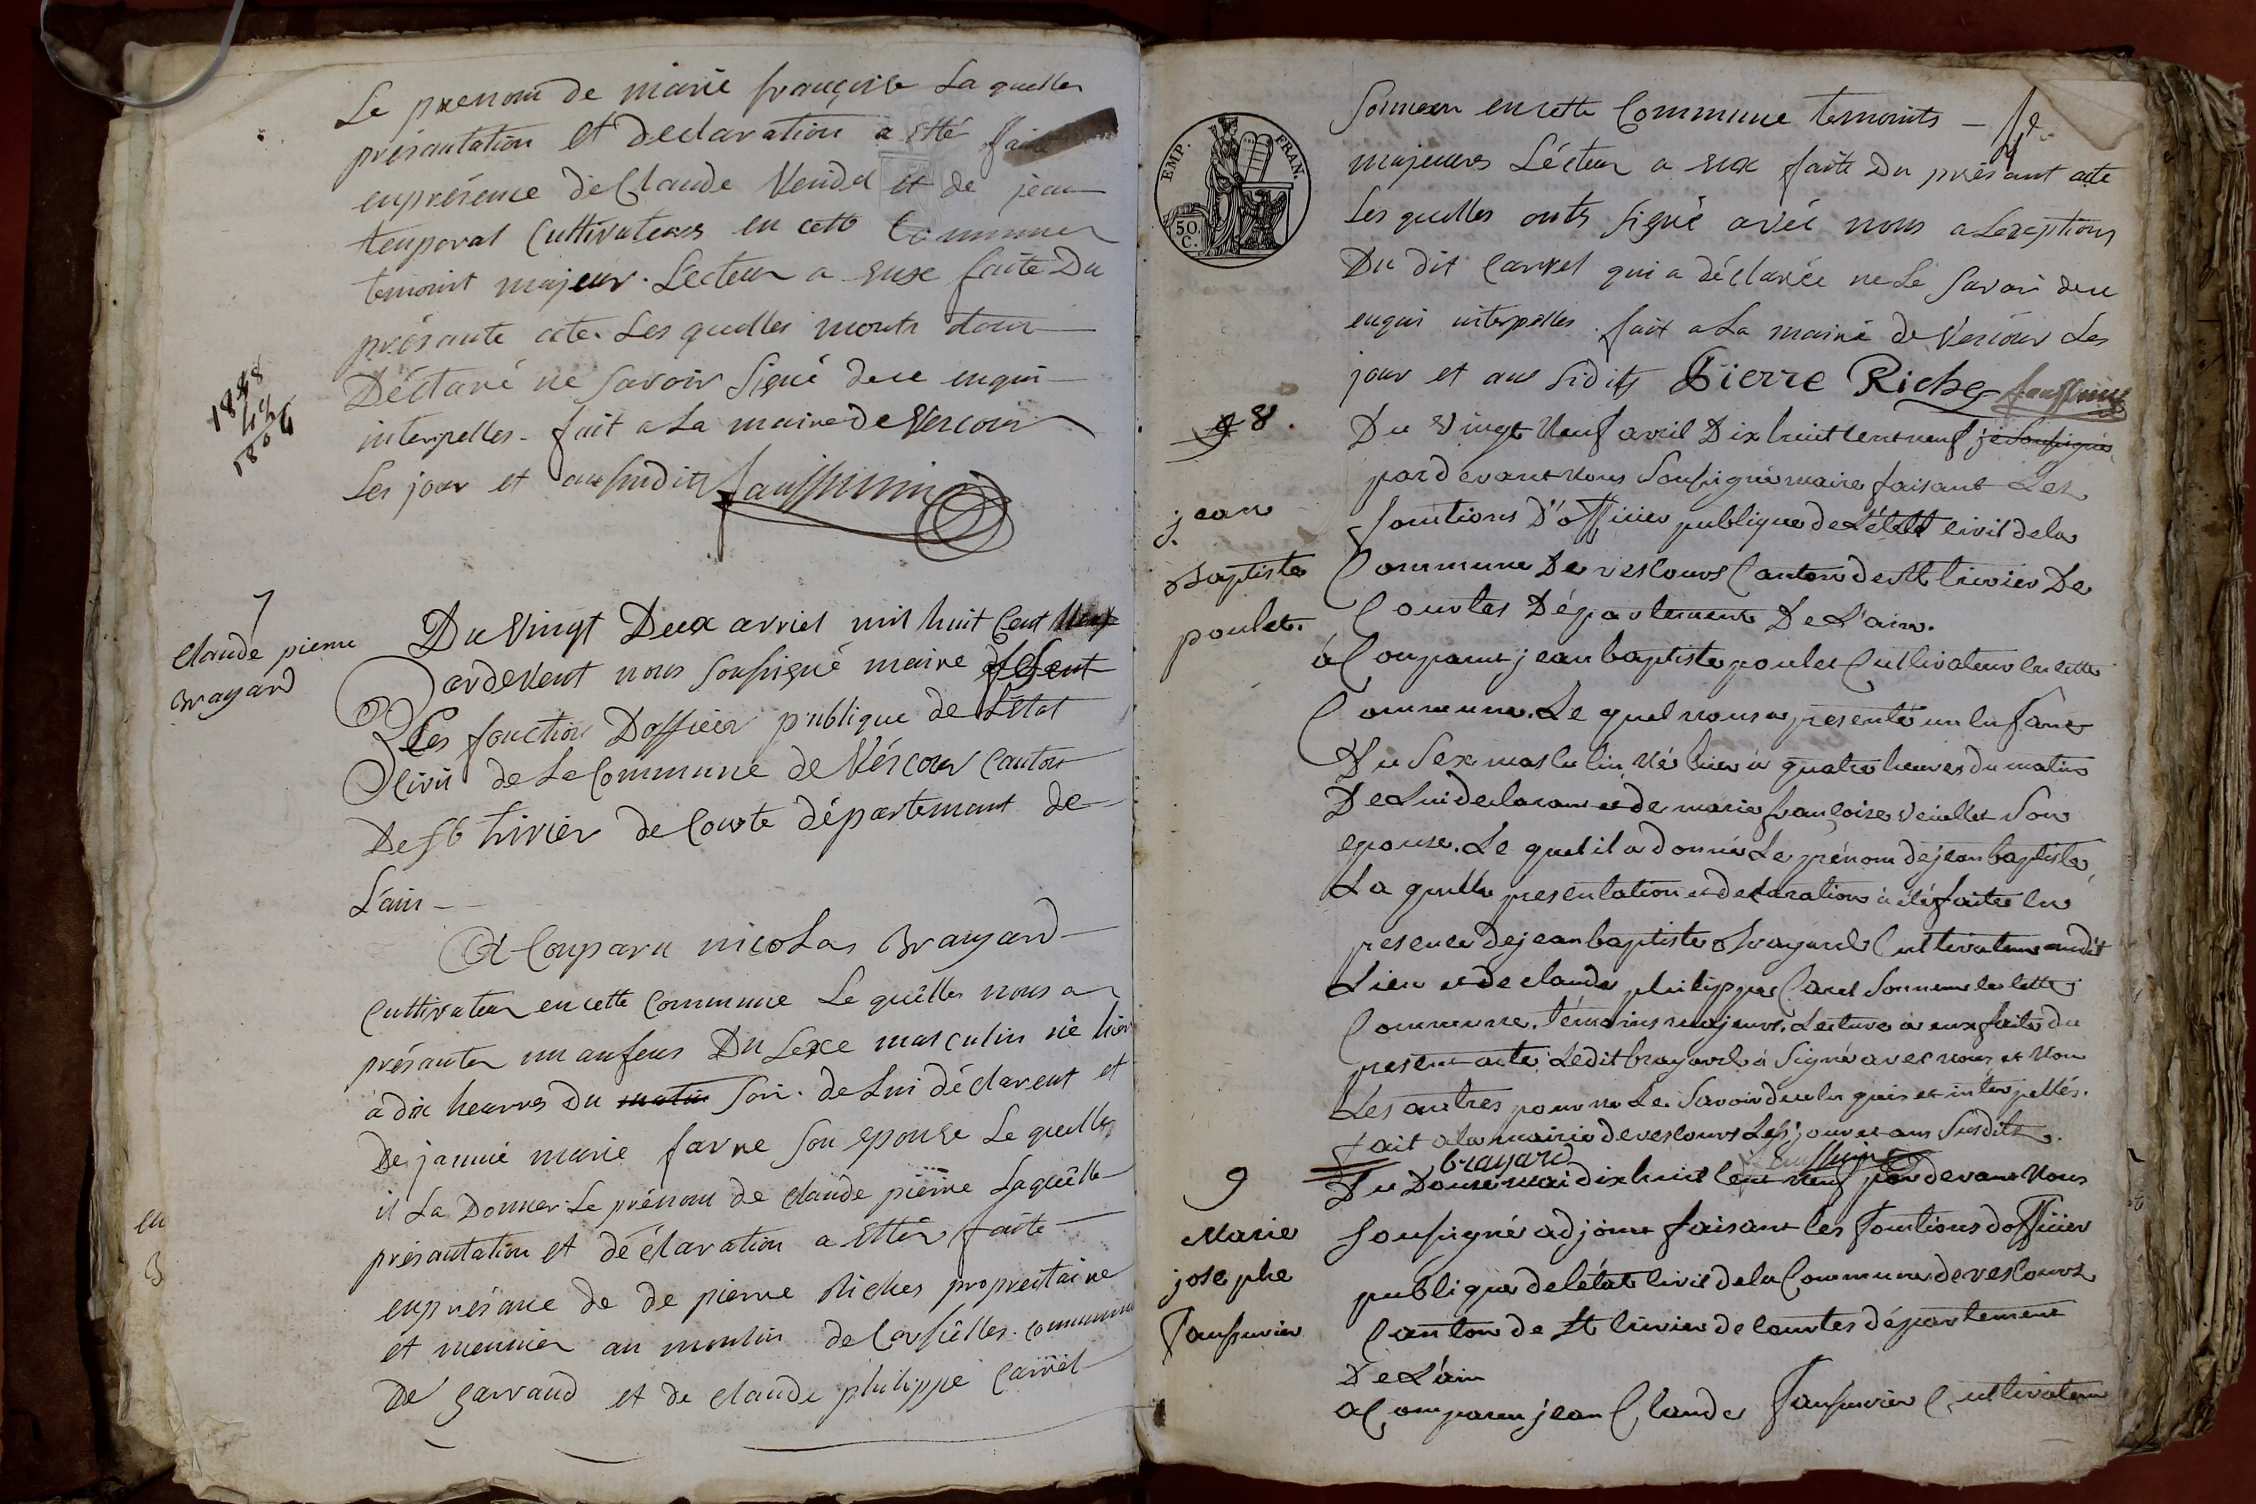 Le prenom de marie françoise La quelles
présantation et declaration a etté faite
enprésence de Claude Vendel et de jean
temporal Cultivateurs en cette Commune
temoint majeur. Lecteur a eux faite Du
présante acte. Les quelles monts tour
Déclaré ne Savoir Signé dece enqui
interpelles. fait a La mairie de Vercour
Les jour et an Sudits
1848
42
1806
7
Claude pierre
Brayard
Du Vingt Deux avriel mil huit Cent Neuf
Pardevent nous Sousigné maire fesent
Les fonction Dofficier publique de L'état
Civil de La Commune de Vércour Canton
De St trivier de Courte département de
L'ain -
A Comparu nicolas Brayard
Cultivateur en cette Commune Le quêlles nous a
présanter un anfens Du Sexe masculin né hier
a dix heurres Du matin Soir. de Lui déclarent et
De jannié marie favre Son epouse Le quelles
il La Donner Le prénom de claude pierre Laquêlle
présantation et déclaration a ettér faite
enprésance de de pierre Riches propreitaire
et meunier au moulin de Corsêlles. commune
De Sarvaud et de Claude philippe Carrel
en
B
EMP. FRAN.
50 C.
Sonneur en cette Commune temoints -
majeures Lécteur a eux faite Du présant acte
Les quelles onts Signé avec nous a Lexeptions
Du dit Carrel qui a déclarée ne Le Savoir dece
enquis interpelles. fait a La mairie de Vercour Les
jour et ans Sidits Pierre Riche
8.
jean
Baptiste
poulet.
Du Vingt Neuf avril Dix huit cent neuf je Soussigné
par devant nous Soussigné maire faisant Les
fonctions D'officier publique de L'état civil de la
Commune De vescours Canton de St trivier De
Courtes Département De L'ain.
à Comparu jean baptiste poulet Cultivateur en cette
Commune. Le quel nous a presenté un enfant
Du Sexe masculin Né hier à quatre heures du matin
De Lui declarant et de marie françoise veuillet Son
epouse. Le quel il a donné Le prénom de jean baptiste
La quelle presentation et declaration à été faite en
presence de jean baptiste Brayard Cultivateur audit
Lieu et de claude philippe Carel Sonneur en cette
Commune. témoins majeurs. Lecture à eux faite du
present acte Ledit brayard à Signé avec nous et Non
Les autres pour ne Le Savoir de ce enquis et interpellés.
fait a la mairie de vescours Les jour et an Susdits.
brayard
9
Marie
josephe
Du Douze mai dix huit Cent neuf par devant Nous
Soussigné adjoint faisant les fonctions d'officier
publique de l'état civil de la Commune de vescours
Canton de St trivier de courtes département
De L'ain
a Comparu jean Claude Cultivateur